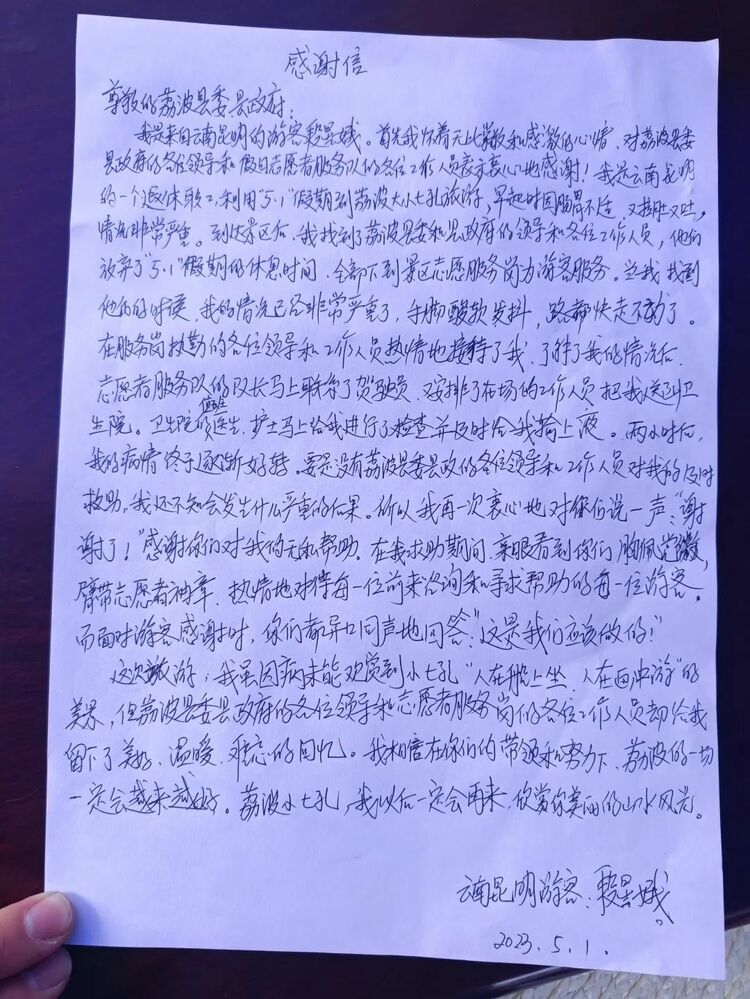 感谢信
尊敬的荔波县委县政府：
我是来自云南昆明的游客段星娥。首先我怀着无比崇敬和感激的心情，对荔波县委
县政府的各位领导和假日志愿者服务队的各位工作人员表示衷心地感谢！我是云南昆明
的一个退休职工，利用"5.1"假期到荔波大小七孔旅游，早起时因肠胃不适，又拉肚又吐，
情况非常严重。到达景区后，我找到了荔波县委和县政府的领导和各位工作人员，他们
放弃了"5.1"假期的休息时间，全部下到景区志愿服务岗为游客服务。当我找到
他们的时候，我的情况已经非常严重了，手脚酸软发抖，路都快走不动了。
在服务岗执勤的各位领导和工作人员热情地接待了我，了解了我的情况后，
志愿者服务队的队长马上联系了驾驶员，又安排了在场的工作人员把我送到卫
生院。卫生院值班医生、护士马上给我进行了检查并及时给我输上液。两小时后，
我的病情终于逐渐好转。要是没有荔波县委县政的各位领导和工作人员对我的及时
救助，我还不知会发生什么严重的后果。所以我再一次衷心地对你们说一声："谢
谢了！"感谢你们对我的无私帮助。在我求助期间，亲眼看到你们胸佩党徽，
臂带志愿者袖章，热情地对待每一位前来咨询和寻求帮助的每一位游客。
而面对游客感谢时，你们都异口同声地回答："这是我们应该做的！"
这次旅游，我虽因病未能观赏到小七孔"人在船上坐，人在画中游"的
美景，但荔波县委县政府的各位领导和志愿者服务岗们的各位工作人员却给我
留下了美好、温暖、难忘的回忆。我相信在你们的带领和努力下，荔波的一切
一定会越来越好。荔波小七孔，我以后一定会再来，欣赏你美丽的山水风光。
云南昆明游客：段星娥。
2023.5.1.